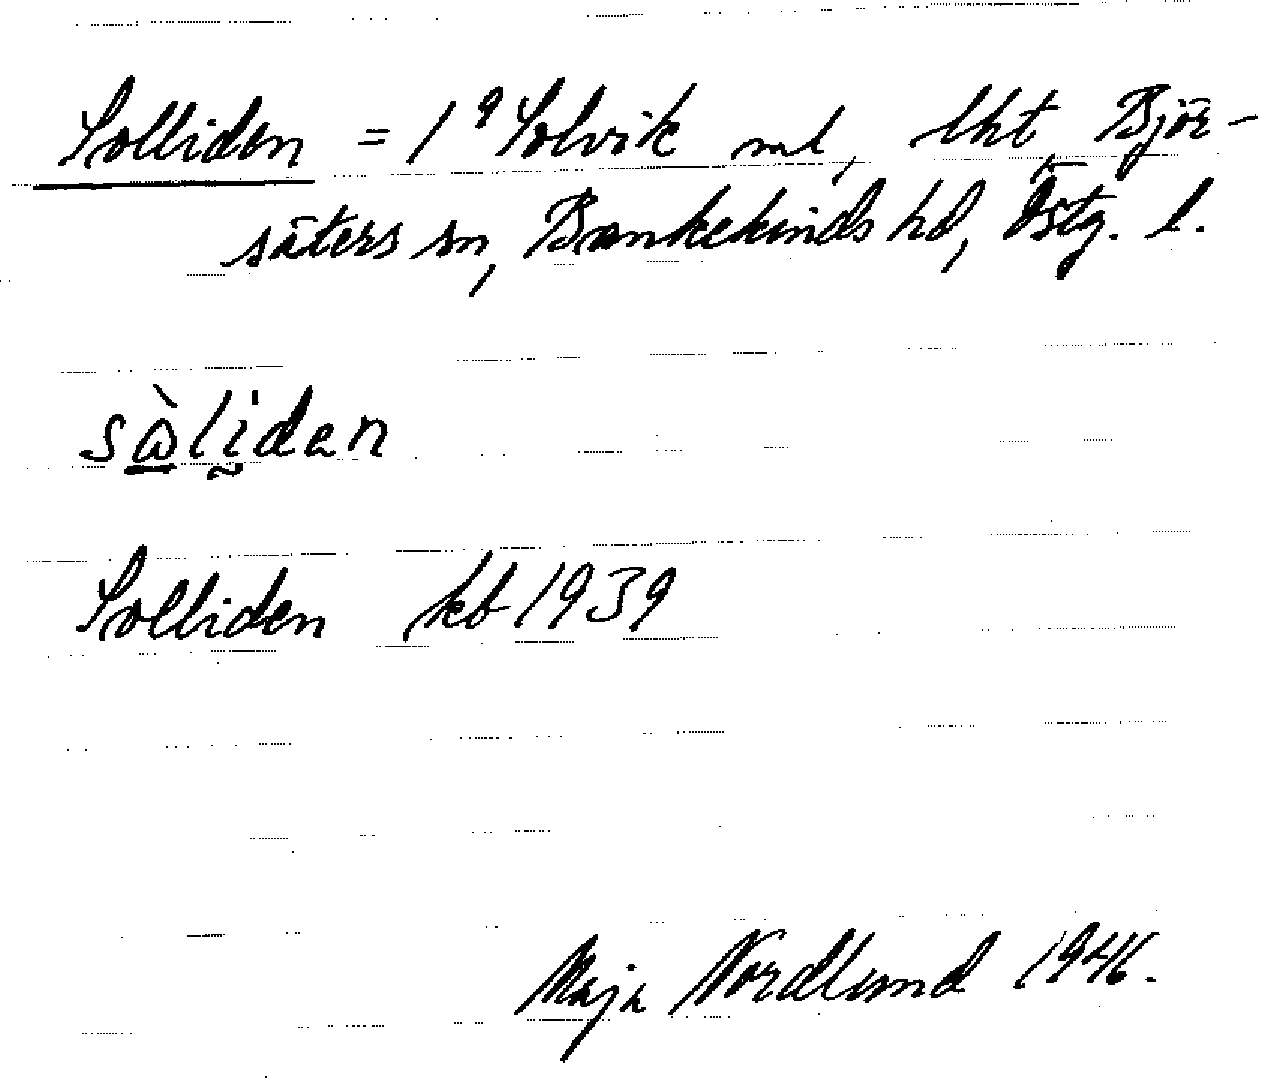 Solliden = 1⁹ Solvik ml, lht Björ-
säters sn, Bankekinds hd, Östg. l.
sàliden
Solliden kb 1939
Maja Nordlund 1946.